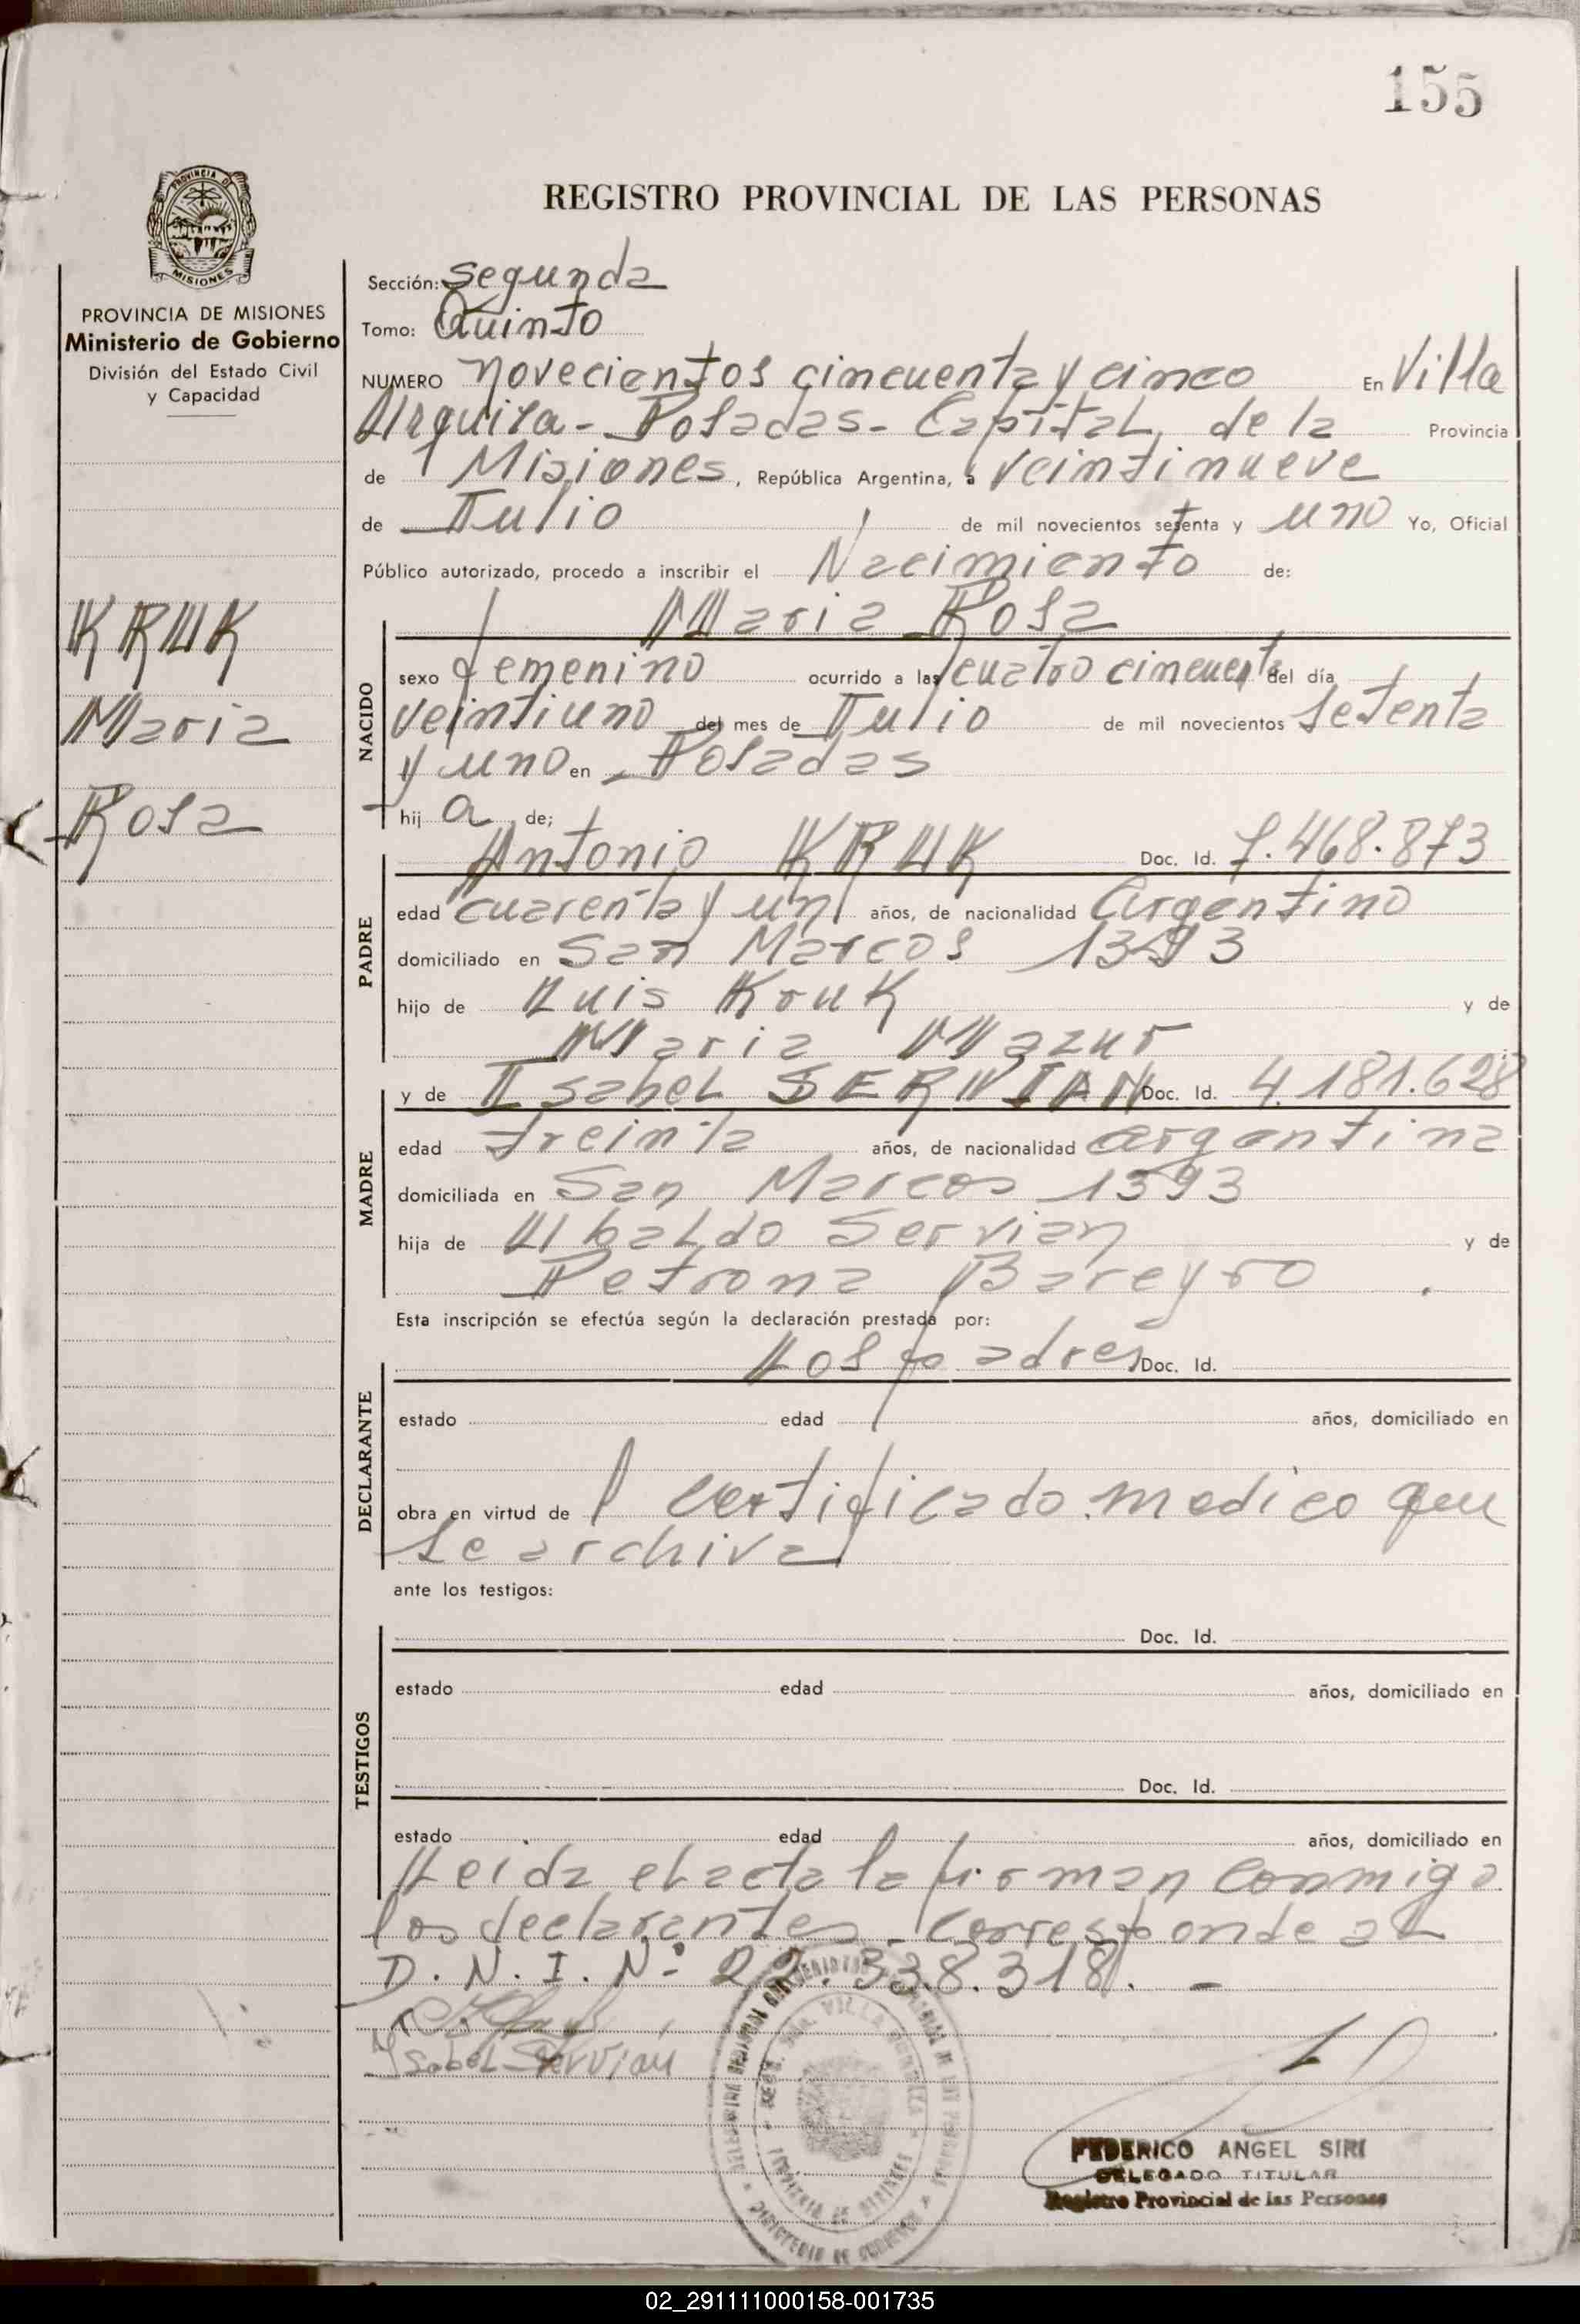 155
REGISTRO PROVINCIAL DE LAS PERSONAS
PROVINCIA DE MISIONES
Ministerio de Gobierno
División del Estado Civil
y Capacidad
KRUK
Maria
Rosa
Sección: Segunda
Tomo: Quinto
NUMERO novecientos cincuenta y cinco En Villa
Urquiza - Posadas - Capital de la Provincia
de Misiones, República Argentina, a veintinueve
de Julio de mil novecientos setenta y uno Yo, Oficial
Público autorizado, procedo a inscribir el Nacimiento de:
Maria Rosa
NACIDO
sexo femenino ocurrido a las cuatro cincuenta del día
veintiuno del mes de Julio de mil novecientos setenta
y uno en Posadas
hij a de;
Antonio KRUK Doc. Id. 7.468.873
PADRE
edad cuarenta y un años, de nacionalidad argentino
domiciliado en San Marcos 1393
hijo de Luis Kruk y de
Maria Mazur
y de Isabel SERVIAN Doc. Id. 4.181.628
MADRE
edad treinta años, de nacionalidad argentina
domiciliada en San Marcos 1393
hija de Ubaldo Servian y de
Petrona Bareyro
Esta inscripción se efectúa según la declaración prestada por:
Los padres Doc. Id.
DECLARANTE
estado edad años, domiciliado en
obra en virtud de l certificado medico que
se archiva
ante los testigos:
Doc. Id.
TESTIGOS
estado edad años, domiciliado en
Doc. Id.
estado edad años, domiciliado en
Leida el acta la firman conmigo
los declarantes - corresponde al
D.N.I. Nº 22.338.318. -
Isabel Servian
FEDERICO ANGEL SIRI
DELEGADO TITULAR
Registro Provincial de las Personas
02_291111000158-001735